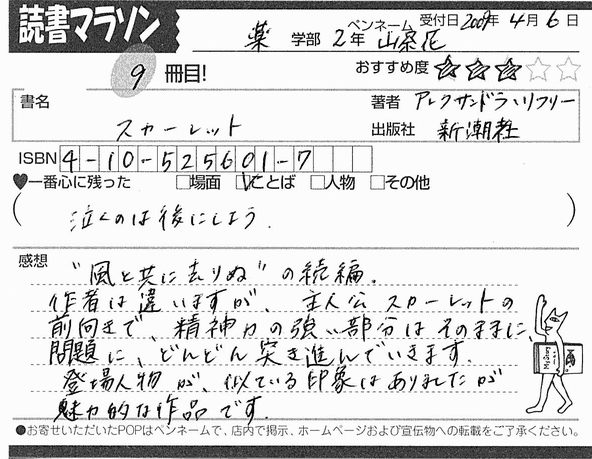 読書マラソン
受付日 2009年 4月 6日
薬 学部 2年 ペンネーム 山茶花
9 冊目!
おすすめ度 ★★★☆☆
書名
スカーレット
著者 アレクサンドラ・リプリー
出版社 新潮社
ISBN 4-10-525601-7
♥一番心に残った □場面 ☑ことば □人物 □その他
( 泣くのは後にしよう. )
感想
"風と共に去りぬ"の続編.
作者は違いますが、主人公スカーレットの
前向きで、精神力の強い部分はそのままに、
問題に、どんどん突き進んでいきます.
登場人物が、似ている印象はありましたが
魅力的な作品です.
●お寄せいただいたPOPはペンネームで、店内で掲示、ホームページおよび宣伝物への転載をご了承ください。